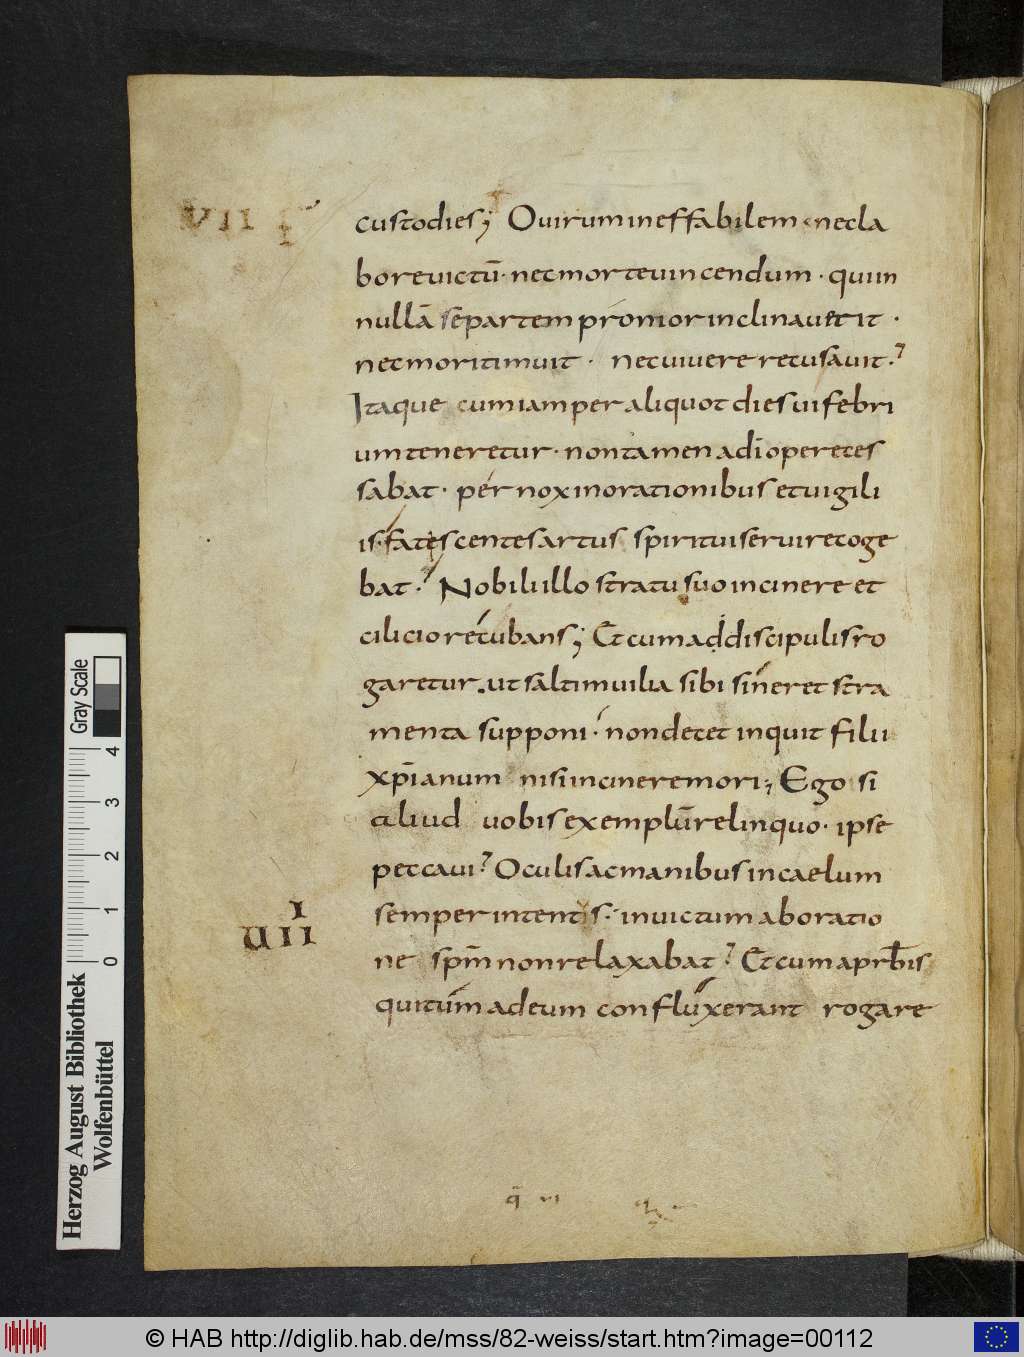 VII
custodies; O uirum ineffabilem nec la
bore uictū· nec morte uincendum · qui in
nullā se partem pronior inclinauerit ·
nec mori timuit · nec uiuere recusauit ·
Itaque cum iam per aliquot dies ui febri
um teneretur · non tamen a dī opere ces
sabat · pernox in orationibus et uigili
is· fatescentes artus spiritui seruire coge
bat · Nobili illo stratu suo in cinere et
cilicio recubans; Et cum a discipulis ro
garetur · ut saltim uilia sibi sineret stra
menta supponi · non decet inquit filii
xp̄ianum nisi in cinere mori; Ego si
aliud uobis exemplū relinquo · ipse
peccaui? Oculis ac manibus in caelum
semper intentis · inuictum ab oratio
I
UII
ne spm̄ non relaxabat? Et cum a prb̄is
qui tum ad eum confluxerant rogare
q̄ VI
Herzog August Bibliothek
Wolfenbüttel
Gray Scale
0 1 2 3 4
© HAB http://diglib.hab.de/mss/82-weiss/start.htm?image=00112